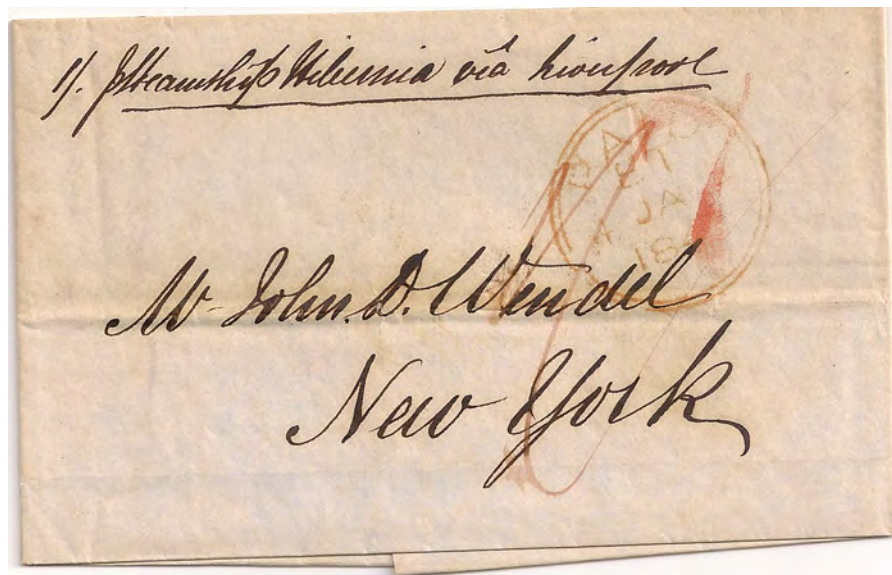 1/. p Steamship Hibernia via Liverpool
PAID
JA
18
Mr John. D. Wendel
New York